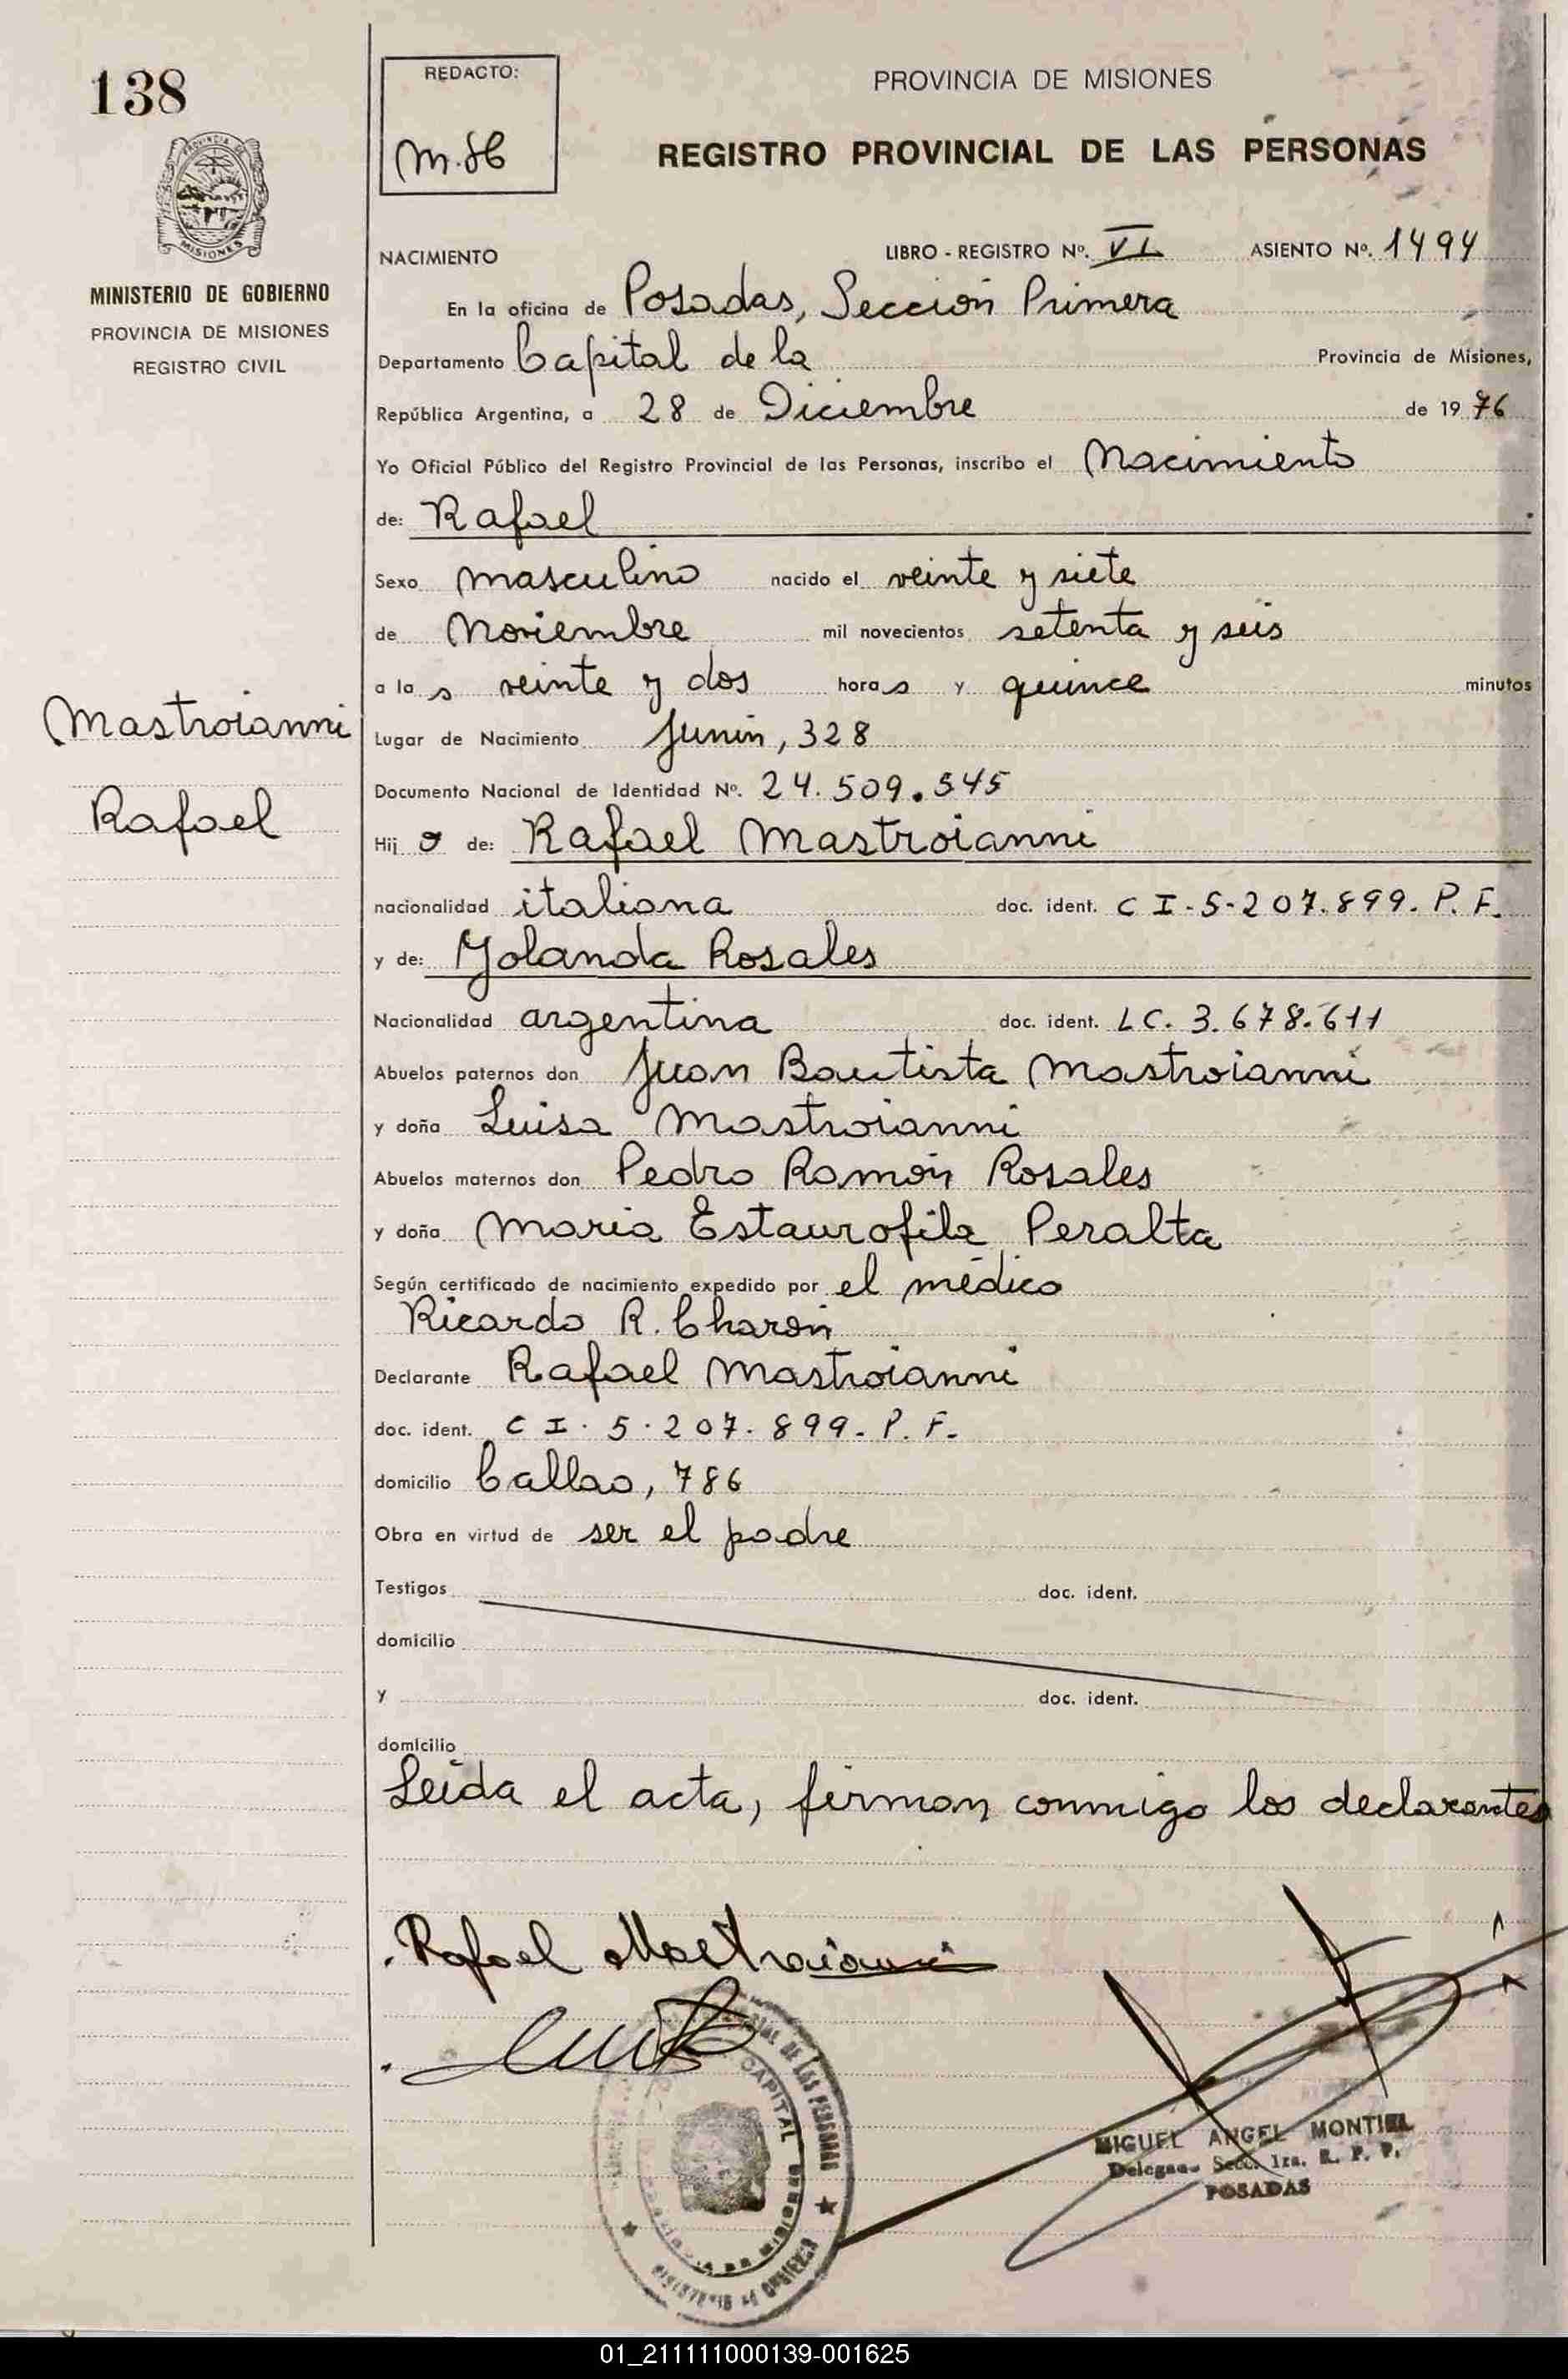 138
PROVINCIA DE
MISIONES
MINISTERIO DE GOBIERNO
PROVINCIA DE MISIONES
REGISTRO CIVIL
Mastroianni
Rafael
REDACTO:
PROVINCIA DE MISIONES
REGISTRO PROVINCIAL DE LAS PERSONAS
NACIMIENTO LIBRO - REGISTRO Nº. VI ASIENTO Nº. 1494
En la oficina de Posadas, Sección Primera
Departamento Capital de la Provincia de Misiones,
República Argentina, a 28 de Diciembre de 1976
Yo Oficial Público del Registro Provincial de las Personas, inscribo el Nacimiento
de: Rafael
Sexo masculino nacido el veinte y siete
de Noviembre mil novecientos setenta y seis
a las veinte y dos horas y quince minutos
Lugar de Nacimiento Junín, 328
Documento Nacional de Identidad Nº. 24.509.545
Hijo de: Rafael Mastroianni
nacionalidad italiana doc. ident. C I - 5-207.899. P. F.
y de: Yolanda Rosales
Nacionalidad argentina doc. ident. LC. 3.678.611
Abuelos paternos don Juan Bautista Mastroianni
y doña Luisa Mastroianni
Abuelos maternos don Pedro Ramón Rosales
y doña Maria Estaurofila Peralta
Según certificado de nacimiento expedido por el médico
Ricardo R. Charón
Declarante Rafael Mastroianni
doc. ident. C I. 5.207.899. P. F.
domicilio Callao, 786
Obra en virtud de ser el padre
Testigos doc. ident.
domicilio
y doc. ident.
domicilio
Leída el acta, firman conmigo los declarantes
Rafael Mastroianni
CAPITAL
MIGUEL ANGEL MONTIEL
Secc. 1ra. R. P. P.
POSADAS
01_211111000139-001625